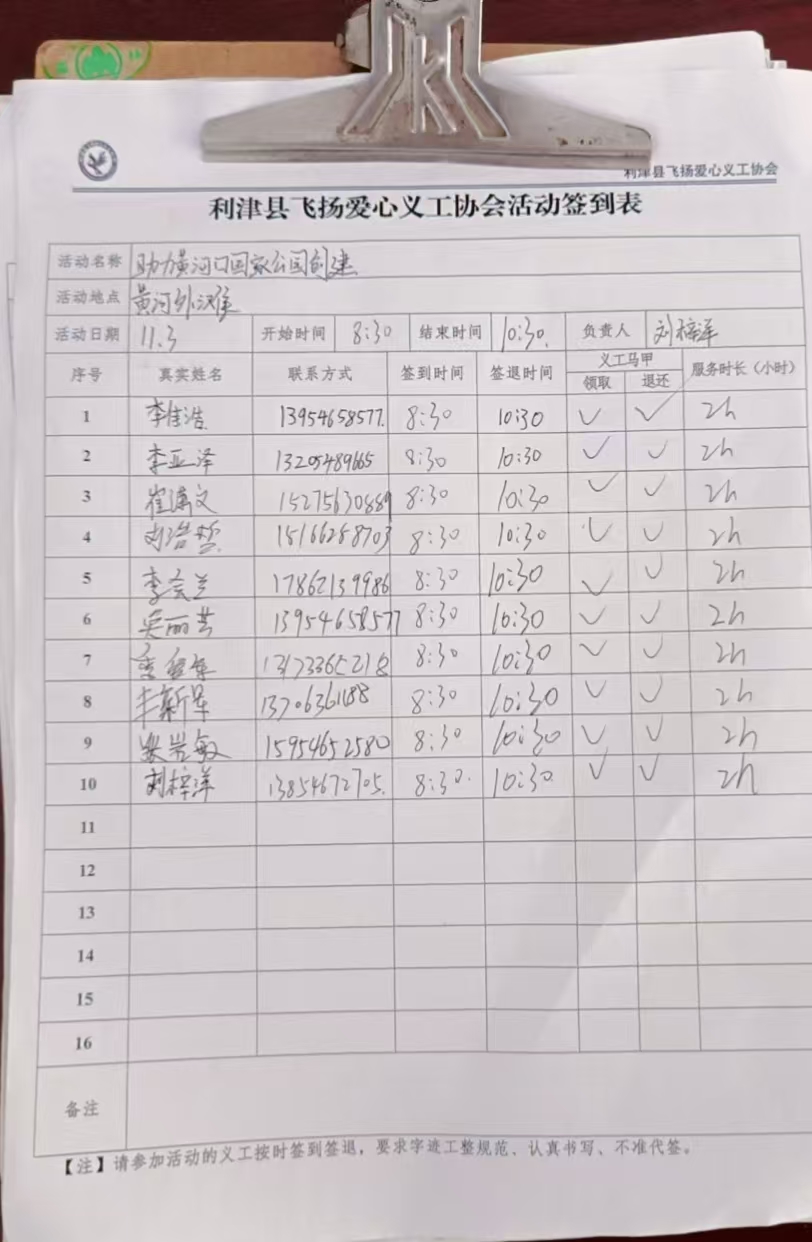 利津县飞扬爱心义工协会
利津县飞扬爱心义工协会活动签到表
活动名称 助力黄河口国家公园创建
活动地点 黄河外滩
活动日期 11.3 开始时间 8:30 结束时间 10:30. 负责人 刘梓洋
序号 真实姓名 联系方式 签到时间 签退时间 义工马甲 服务时长（小时）
领取 退还
1 李佳浩 13954658577. 8:30 10:30 ✓ ✓ 2h
2 李亚泽 13205489665 8:30 10:30 ✓ ✓ 2h
3 崔潇文 15275630889 8:30 10:30 ✓ ✓ 2h
4 刘浩哲 15166258703 8:30 10:30 ✓ ✓ 2h
5 李会兰 17862139986 8:30 10:30 ✓ ✓ 2h
6 吴丽芸 13954658577 8:30 10:30 ✓ ✓ 2h
7 8:30 10:30 ✓ ✓ 2h
8 8:30 10:30 ✓ ✓ 2h
9 15954652580 8:30 10:30 ✓ ✓ 2h
10 刘梓洋 13854672705. 8:30. 10:30 ✓ ✓ 2h
11
12
13
14
15
16
备注
【注】请参加活动的义工按时签到签退，要求字迹工整规范、认真书写、不准代签。